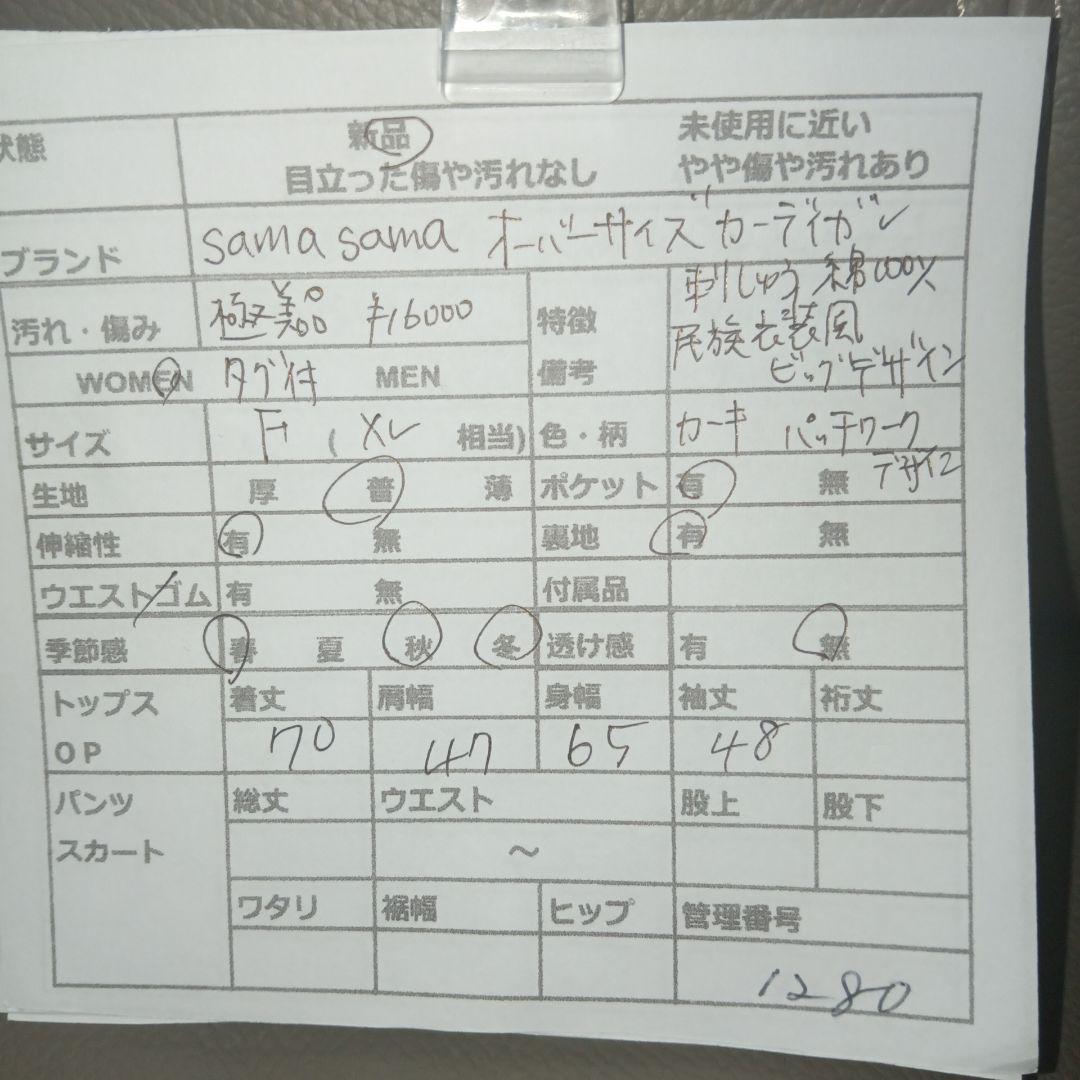 状態 新品 未使用に近い
目立った傷や汚れなし やや傷や汚れあり
ブランド samasama オーバーサイズカーディガン
汚れ・傷み 極美品 ¥16000 特徴 刺しゅう 綿100%
民族衣装風
WOMEN タグ付 MEN 備考 ビッグデザイン
サイズ F ( XL 相当) 色・柄 カーキ パッチワーク
デザイン
生地 厚 普 薄 ポケット 有 無
伸縮性 有 無 裏地 有 無
ウエストゴム 有 無 付属品
季節感 春 夏 秋 冬 透け感 有 無
トップス 着丈 肩幅 身幅 袖丈 裄丈
OP 70 47 65 48
パンツ 総丈 ウエスト 股上 股下
スカート ～
ワタリ 裾幅 ヒップ 管理番号
1280